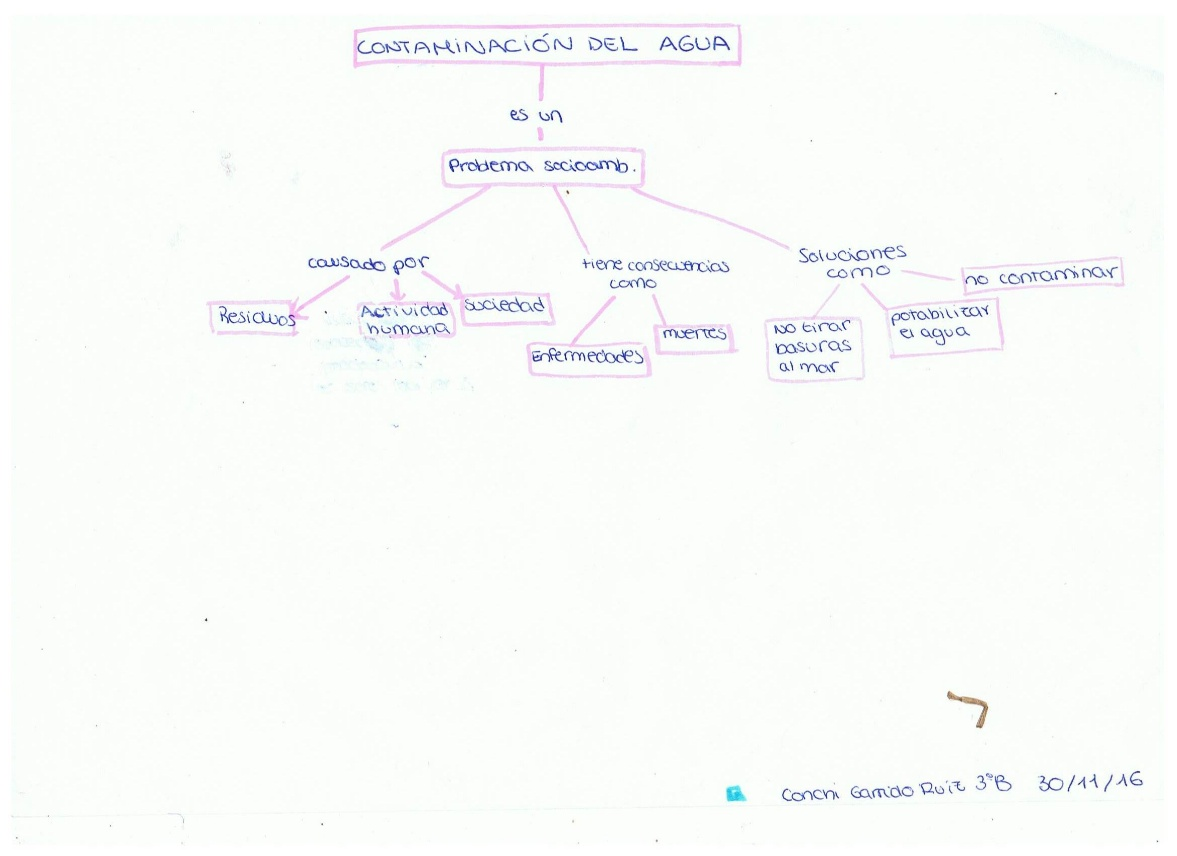 CONTAMINACIÓN DEL AGUA
es un
Problema socioamb.
causado por
Residuos
Actividad
humana
suciedad
tiene consecuencias
como
Enfermedades
muertes
Soluciones
como
No tirar
basuras
al mar
potabilizar
el agua
no contaminar
Conchi Garrido Ruiz 3ºB 30/11/16